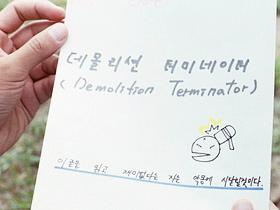 데몰리션 터미네이터
(Demolition Terminator)
이 글을 읽고 재미없다는 자는 악몽에 시달릴것이다.